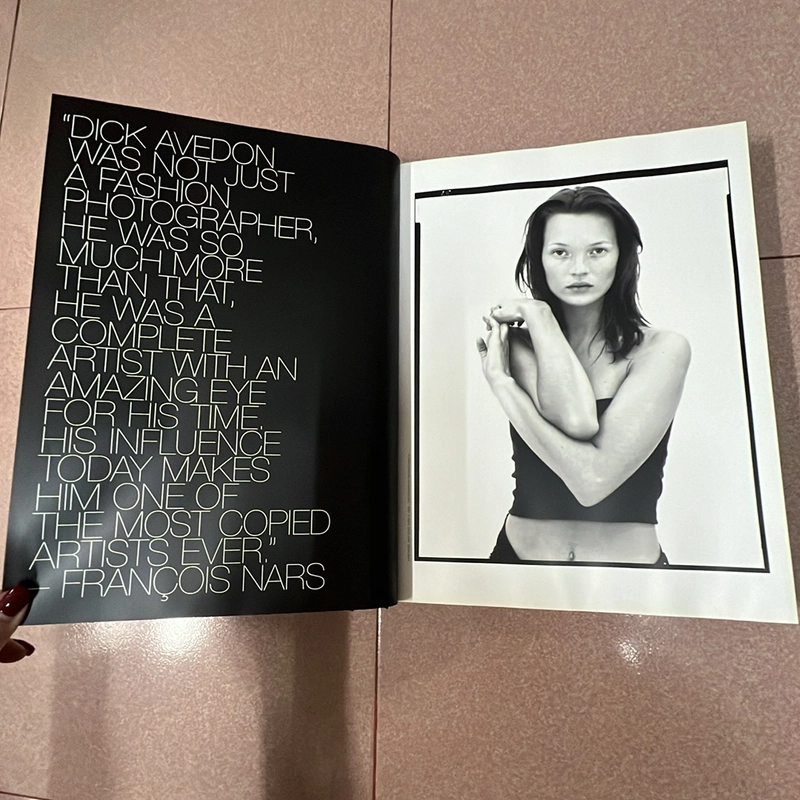 “DICK AVEDON
WAS NOT JUST
A FASHION
PHOTOGRAPHER,
HE WAS SO
MUCH MORE
THAN THAT,
HE WAS A
COMPLETE
ARTIST WITH AN
AMAZING EYE
FOR HIS TIME.
HIS INFLUENCE
TODAY MAKES
HIM ONE OF
THE MOST COPIED
ARTISTS EVER.”
– FRANÇOIS NARS